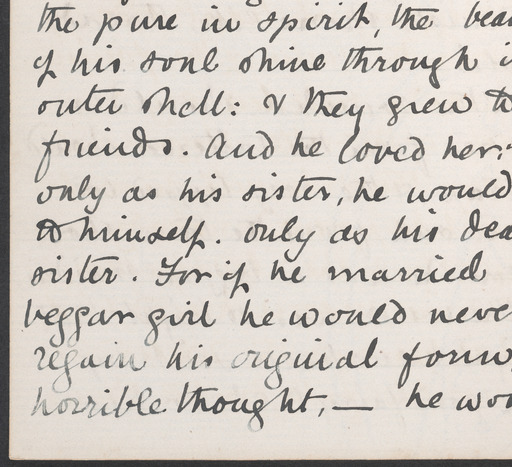 the pure in spirit, the
of his soul shine through
outer shell: & they grew
friends. And he loved her:
only as his sister, he would
to himself. only as his
sister. For if he married
beggar girl he would
regain his original form,
horrible thought, — he